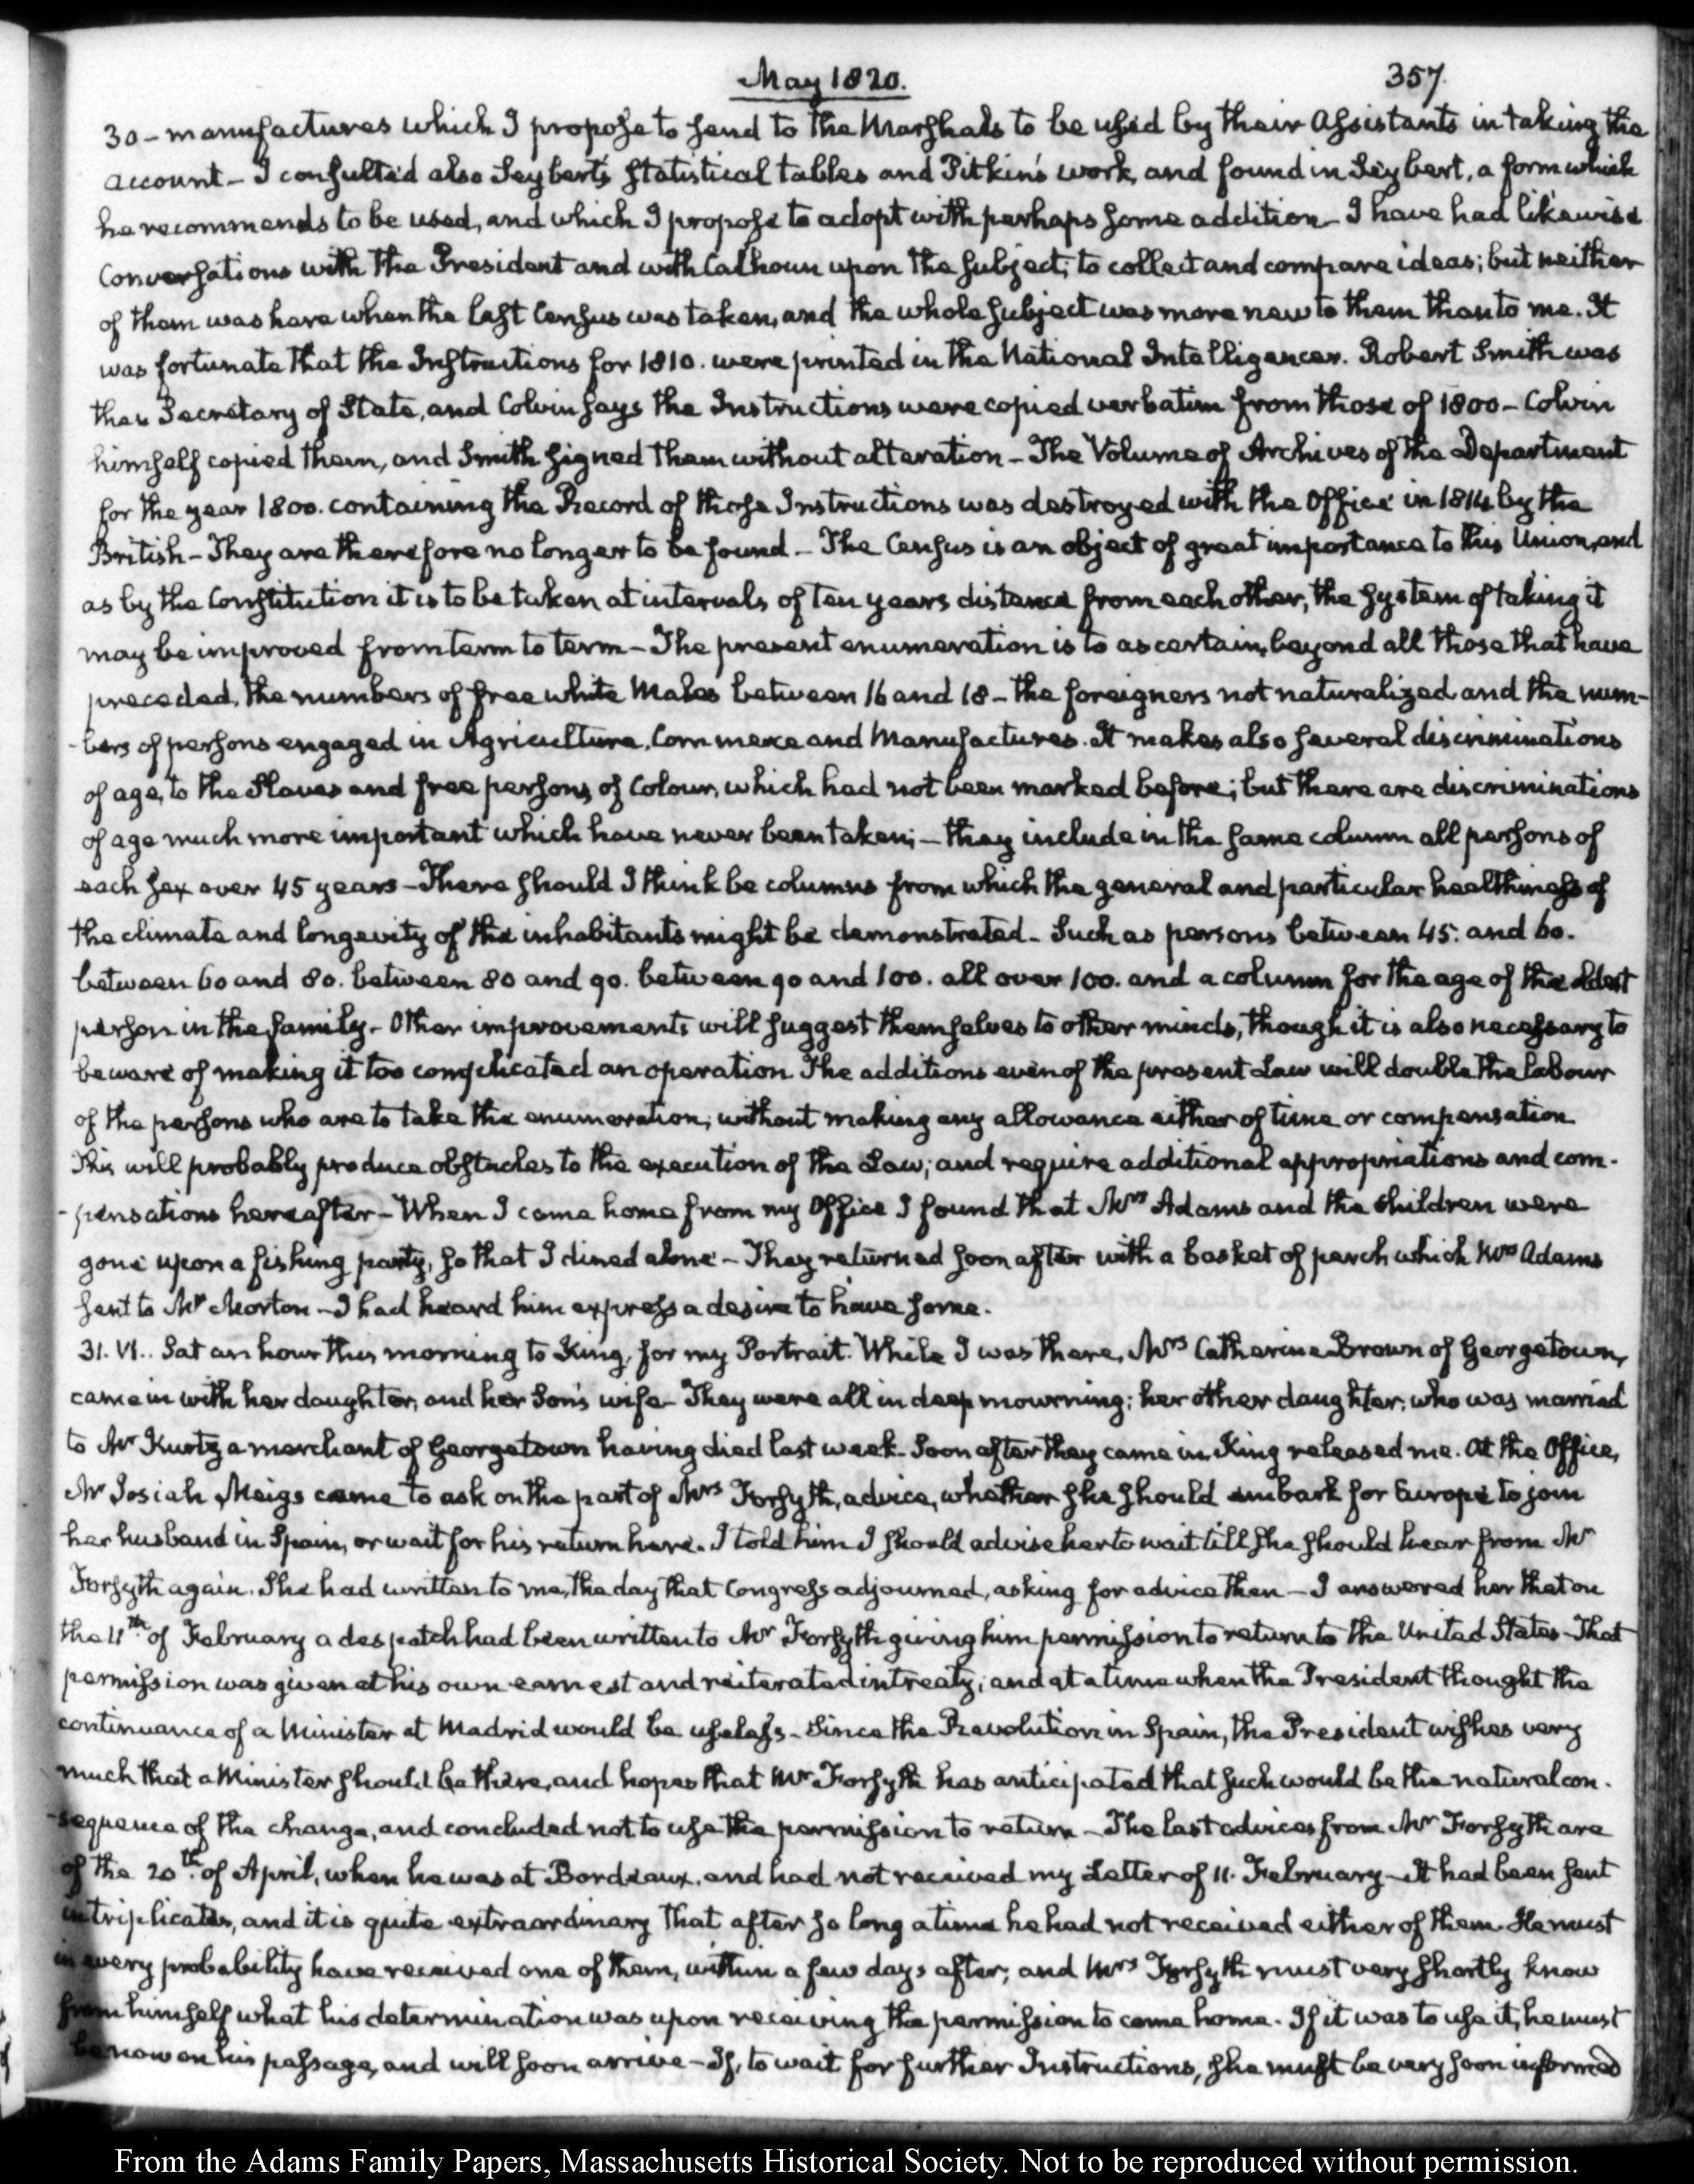 May 1820.
357.
30 - manufactures which I propose to send to the Marshals to be used by their Assistants in taking the
account - I consulted also Seybert's Statistical tables and Pitkin's work, and found in Seybert, a form which
he recommends to be used, and which I propose to adopt with perhaps some addition - I have had likewise
Conversations with the President and with Calhoun upon the subject, to collect and compare ideas; but neither
of them was here when the last Census was taken, and the whole subject was more new to them than to me. It
was fortunate that the Instructions for 1810. were printed in the National Intelligencer. Robert Smith was
then Secretary of State, and Colvin says the Instructions were copied verbatim from those of 1800 - Colvin
himself copied them, and Smith signed them without alteration - The Volume of Archives of the Department
for the year 1800. containing the Record of those Instructions was destroyed with the Office in 1814 by the
British - They are therefore no longer to be found - The Census is an object of great importance to this Union, and
as by the Constitution it is to be taken at intervals of ten years distance from each other, the system of taking it
may be improved from term to term - The present enumeration is to ascertain, beyond all those that have
preceded, the numbers of free white Males between 16 and 18 - the foreigners not naturalized and the num-
-bers of persons engaged in Agriculture, Commerce and Manufactures. It makes also several discriminations
of age, to the Slaves and free persons of Colour, which had not been marked before; but there are discriminations
of age much more important which have never been taken; - they include in the same column all persons of
each sex over 45 years - There should I think be columns from which the general and particular healthiness of
the climate and longevity of the inhabitants might be demonstrated - Such as persons between 45. and 60.
between 60 and 80. between 80 and 90. between 90 and 100. all over 100. and a column for the age of the oldest
person in the family - Other improvements will suggest themselves to other minds, though it is also necessary to
beware of making it too complicated an operation The additions even of the present Law will double the labour
of the persons who are to take the enumeration, without making any allowance either of time or compensation
This will probably produce obstacles to the execution of the Law; and require additional appropriations and com-
-pensations hereafter - When I came home from my Office I found that Mrs Adams and the children were
gone upon a fishing party, so that I dined alone - They returned soon after with a basket of perch which Mrs Adams
sent to Mr Morton - I had heard him express a desire to have some.
31. VI.. Sat an hour this morning to King, for my Portrait. While I was there, Mrs Catherine Brown of Georgetown,
came in with her daughter, and her Son's wife - They were all in deep mourning; her other daughter, who was married
to Mr Kurtz a merchant of Georgetown having died last week - Soon after they came in, King released me. At the Office,
Mr Josiah Meigs came to ask on the part of Mrs Forsyth, advice, whether she should embark for Europe to join
her husband in Spain, or wait for his return here. I told him I should advise her to wait till she should hear from Mr
Forsyth again. She had written to me, the day that Congress adjourned, asking for advice then - I answered her that on
the 11th of February a despatch had been written to Mr Forsyth giving him permission to return to the United States - That
permission was given at his own earnest and reiterated intreaty; and at a time when the President thought the
continuance of a Minister at Madrid would be useless - Since the Revolution in Spain, the President wishes very
much that a Minister should be there, and hopes that Mr Forsyth has anticipated that such would be the natural con-
-sequence of the change, and concluded not to use the permission to return - The last advices from Mr Forsyth are
of the 20th of April, when he was at Bordeaux, and had not received my Letter of 11. February - It had been sent
in triplicates, and it is quite extraordinary that after so long a time he had not received either of them. He must
in every probability have received one of them, within a few days after; and Mrs Forsyth must very shortly know
from himself what his determination was upon receiving the permission to come home. If it was to use it, he must
be now on his passage, and will soon arrive - If, to wait for further Instructions, she must be very soon informed
From the Adams Family Papers, Massachusetts Historical Society. Not to be reproduced without permission.